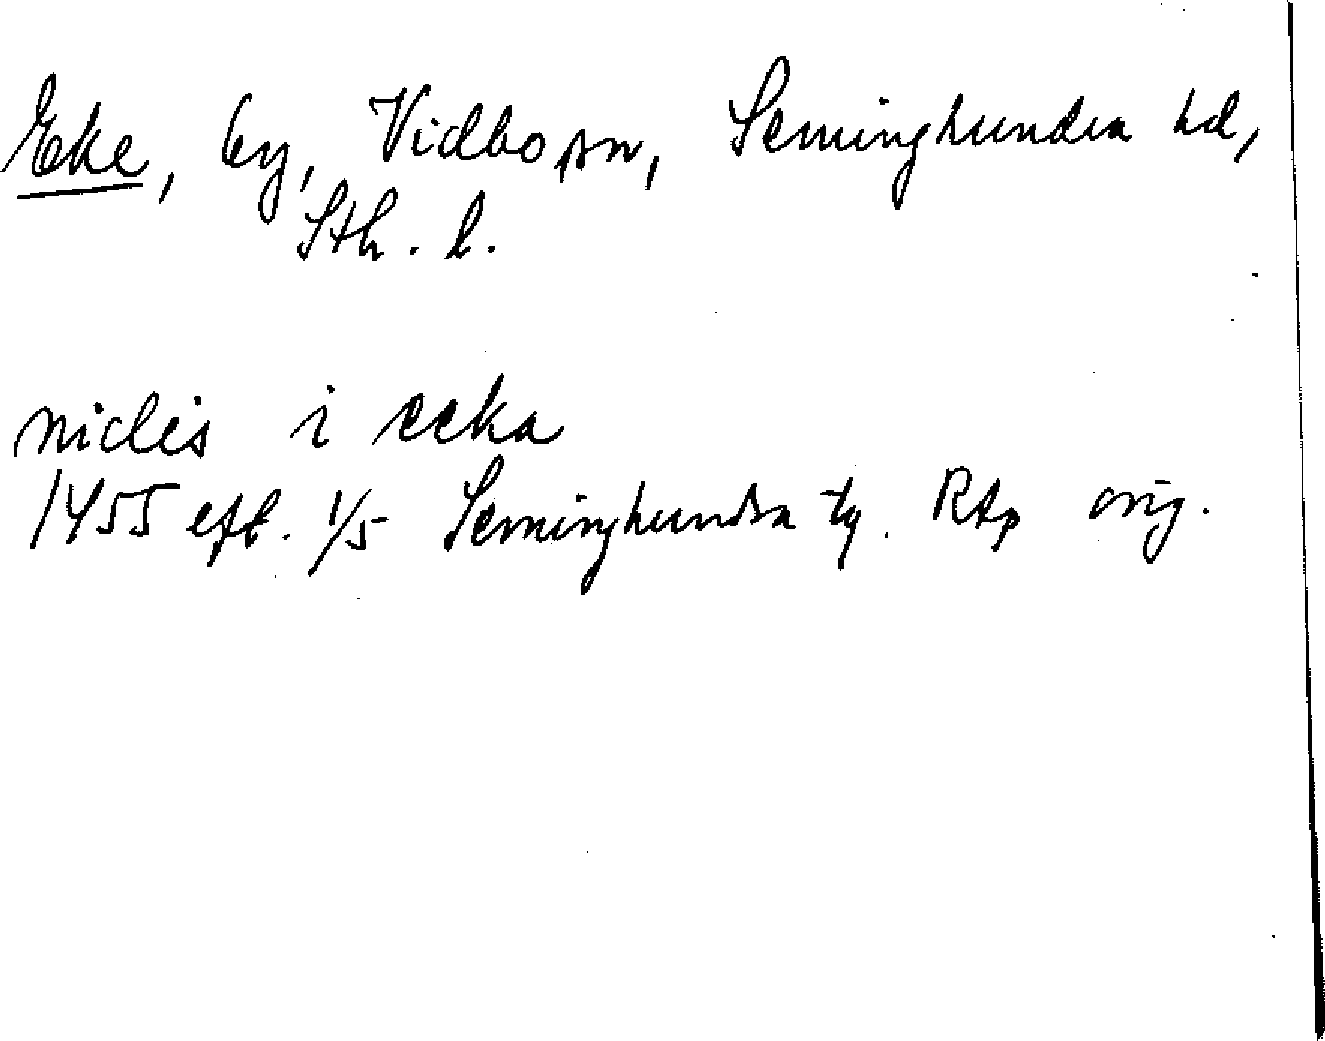 Eke, by, Vidbo sn, Seminghundra hd,
Sth. l.
niclis i ecka
1455 eft. 1/5 Seminghundra tg. Rtp orig.